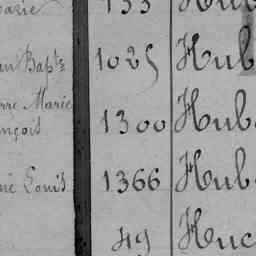 arie 133 Hub
an Bapte 1025 Hub
rre Marie
ançois 1300 Hub
né Louis 1366 Hub
49 Huc